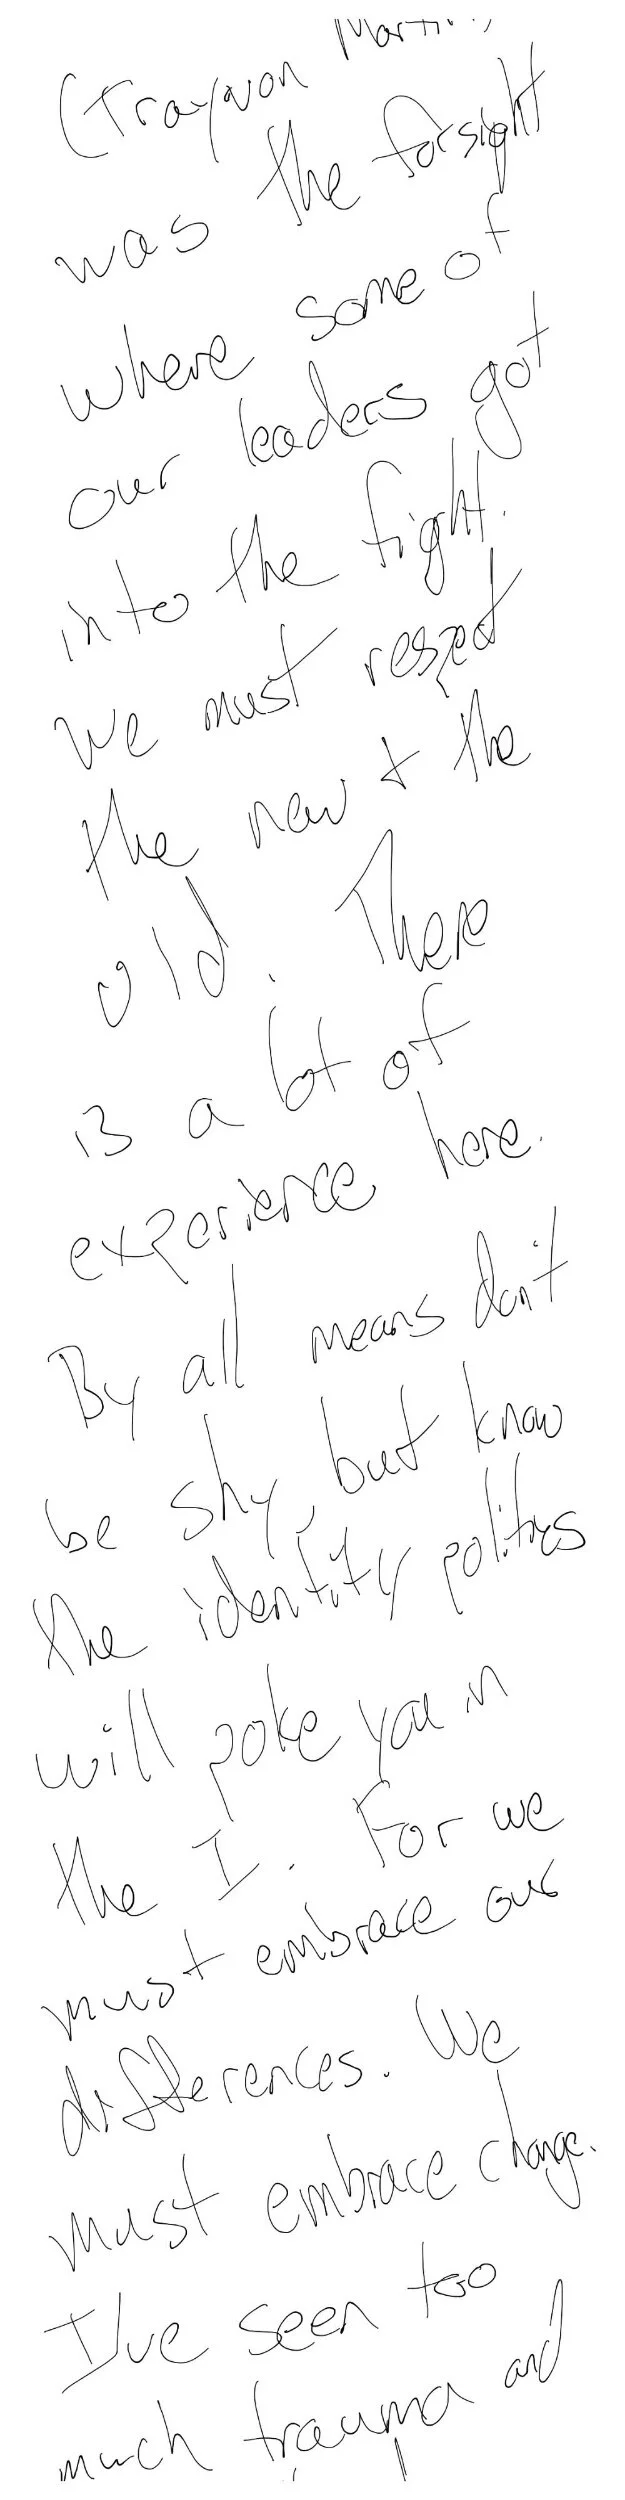 (Trayvon Martin,
was the forsight
where some of
our leaders got
into the fight.
We must respect
the new + the
old. There
is a lot of
experience here.
By all means don't
be shy, but know
the identity politics
will poke you in
the I. For we
must embrace our
differences. We
must embrace change.
I've seen too
much trauma and